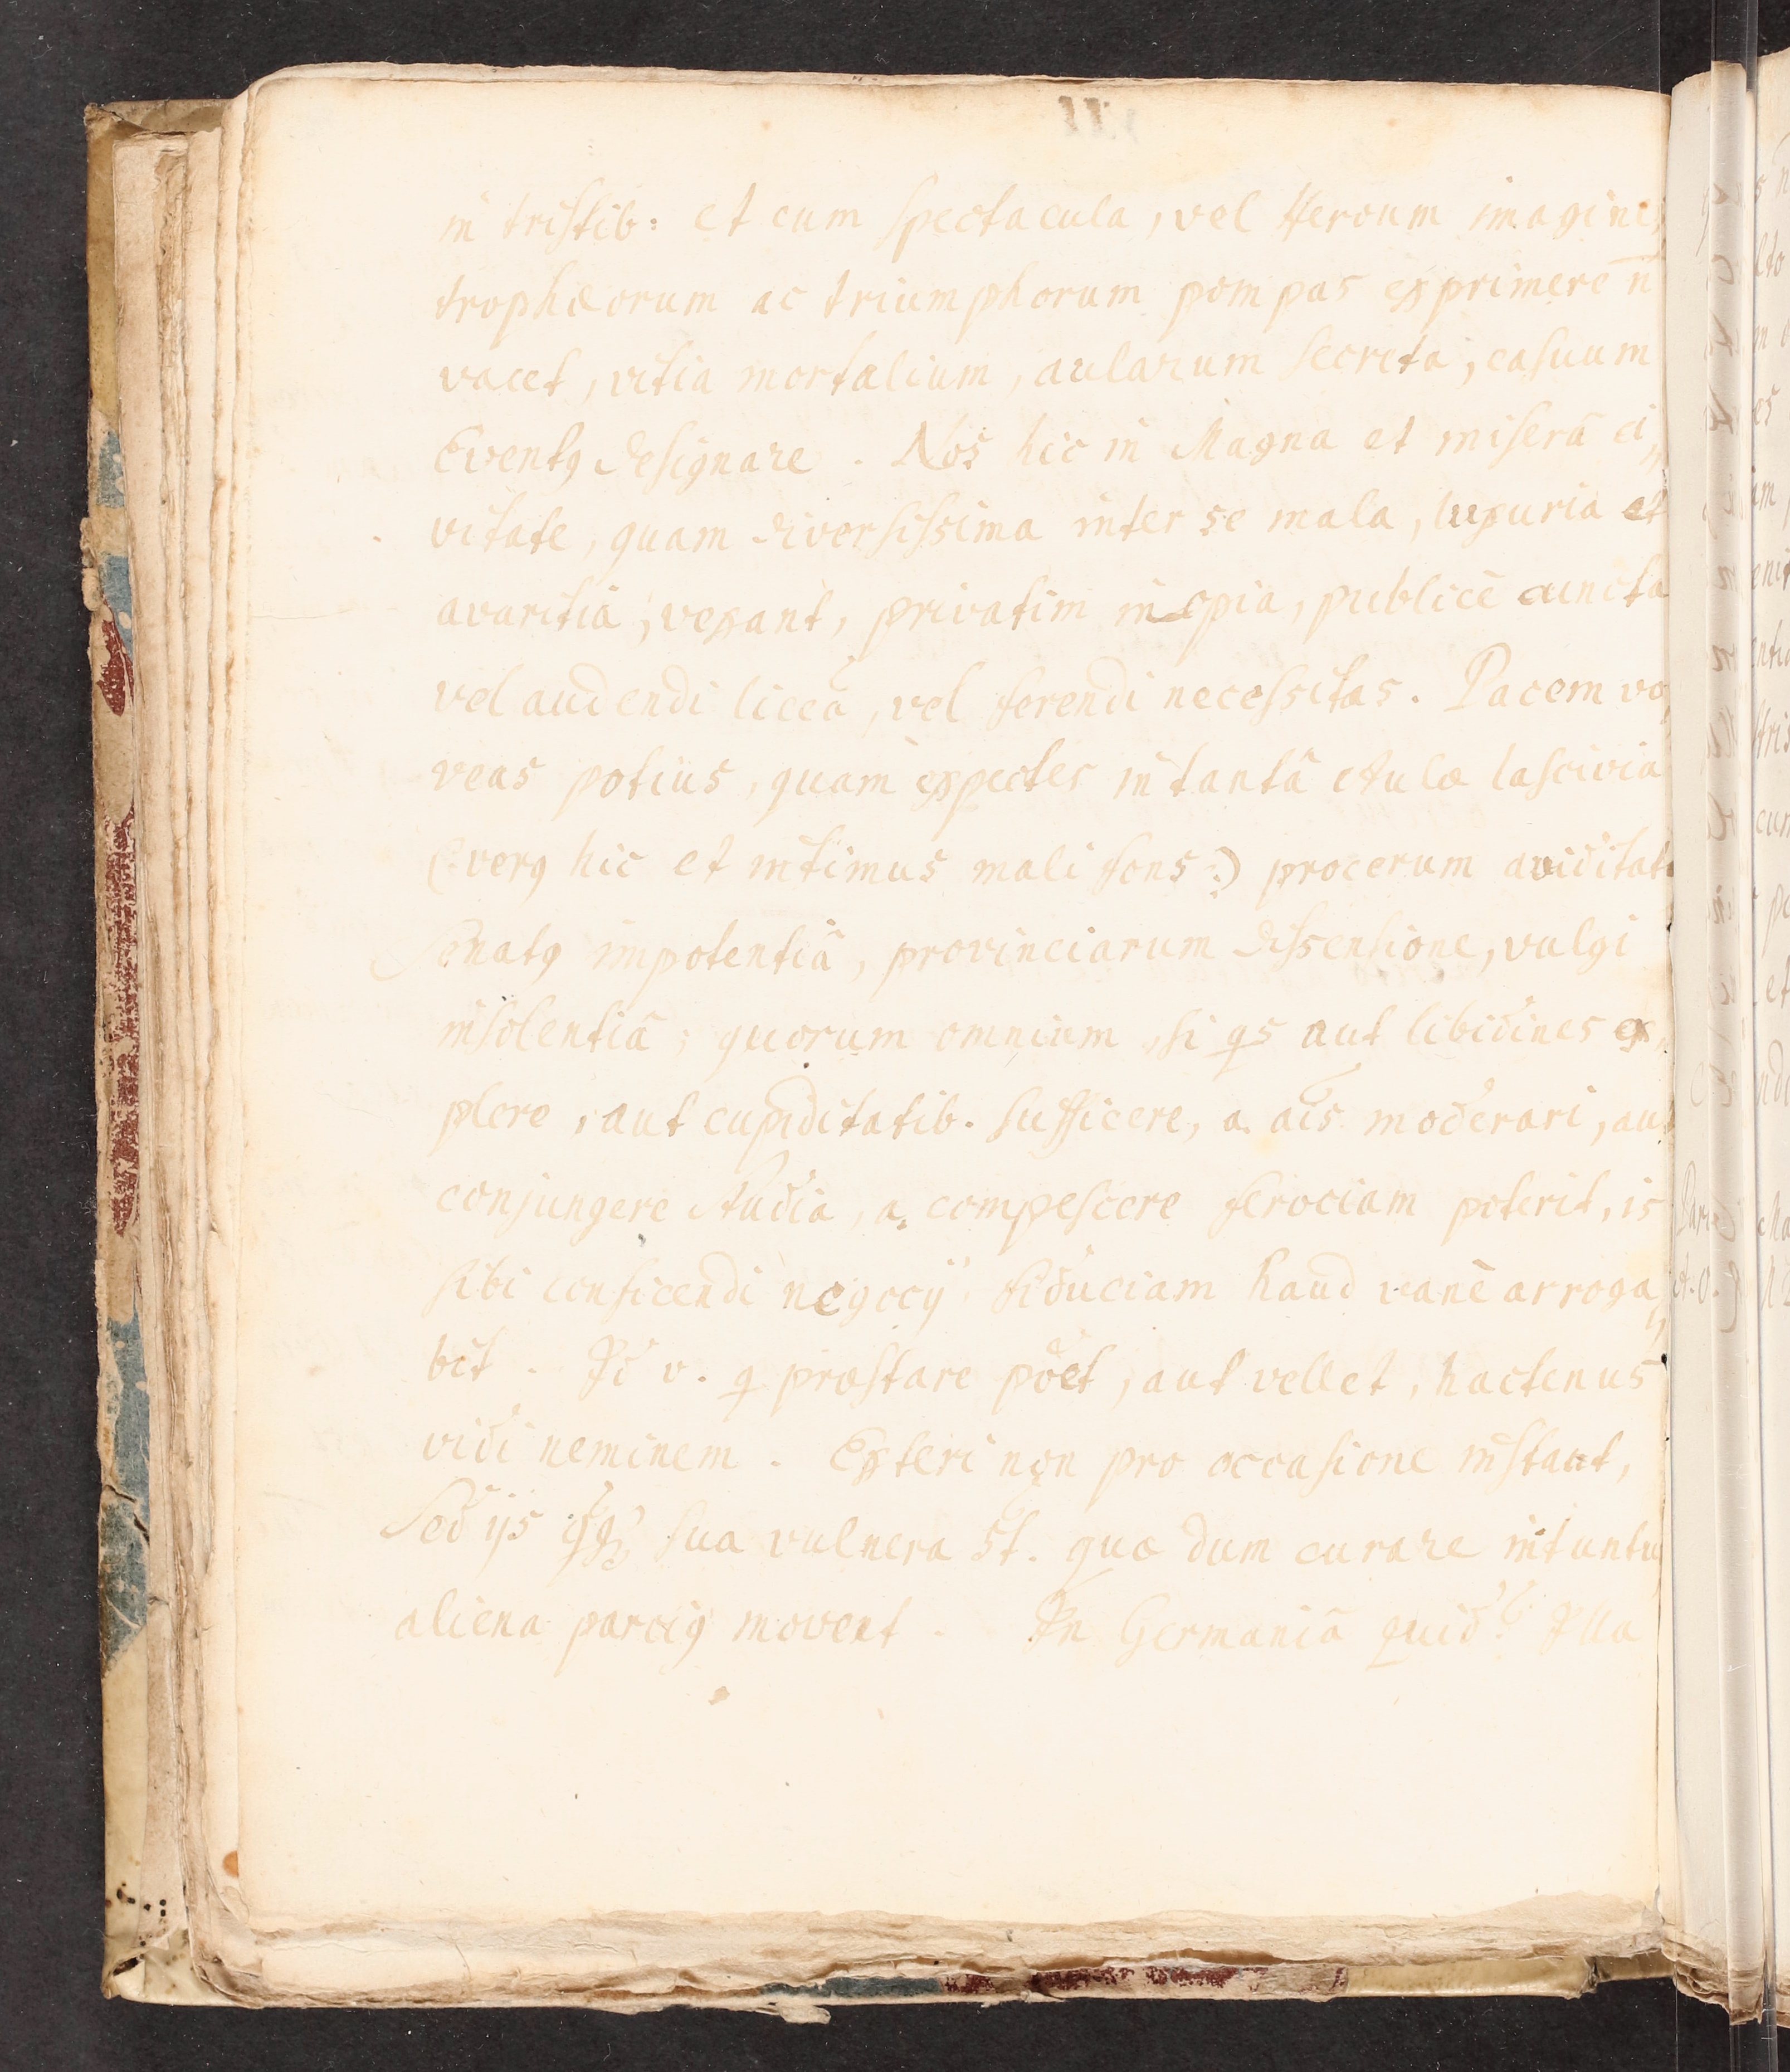 in tristib: et cum spectacula, vel Heroum imagines
trophæorum ac triumphorum pompas exprimere n̄
vacet, vitia mortalium, aularum secreta, casuum
Eventꝯ designare. Nos hic in Magna et miserâ ci„
vitate, quam diversissima inter se mala, luxuria et
avaritia, vexant, privatim inopia, publicè cuncta
vel audendi liceâ, vel ferendi necessitas. Pacem vo„
veas potius, quam expectes in tantâ Aulæ lascivia
(:verꝯ hic et intimus mali fons:) procerum aviditate
Senatꝯ impotentiâ, provinciarum dissensione, vulgi
insolentiâ; quorum omnium, si qs aut libidines ex„
plere, aut cupiditatib. sufficere, a. ais moderari, aut
conjungere studia, a. compescere ferociam poterit, is
sibi conficendi negocij fiduciam haud vanè arroga„
bit. Id v. q præstare poêt, aut vellet, hactenus
vidi neminem. Exteri non pro occasione instant,
Sed ijs sua vulnera st. quæ dum curare intuntur
aliena parciꝯ movent. In Germaniâ quid? Illa